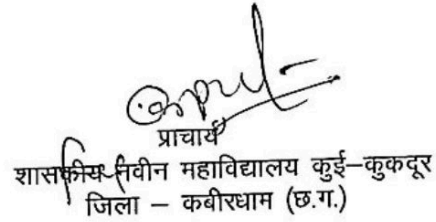 प्राचार्य
शासकीय नवीन महाविद्यालय कुई–कुकदूर
जिला – कबीरधाम (छ.ग.)